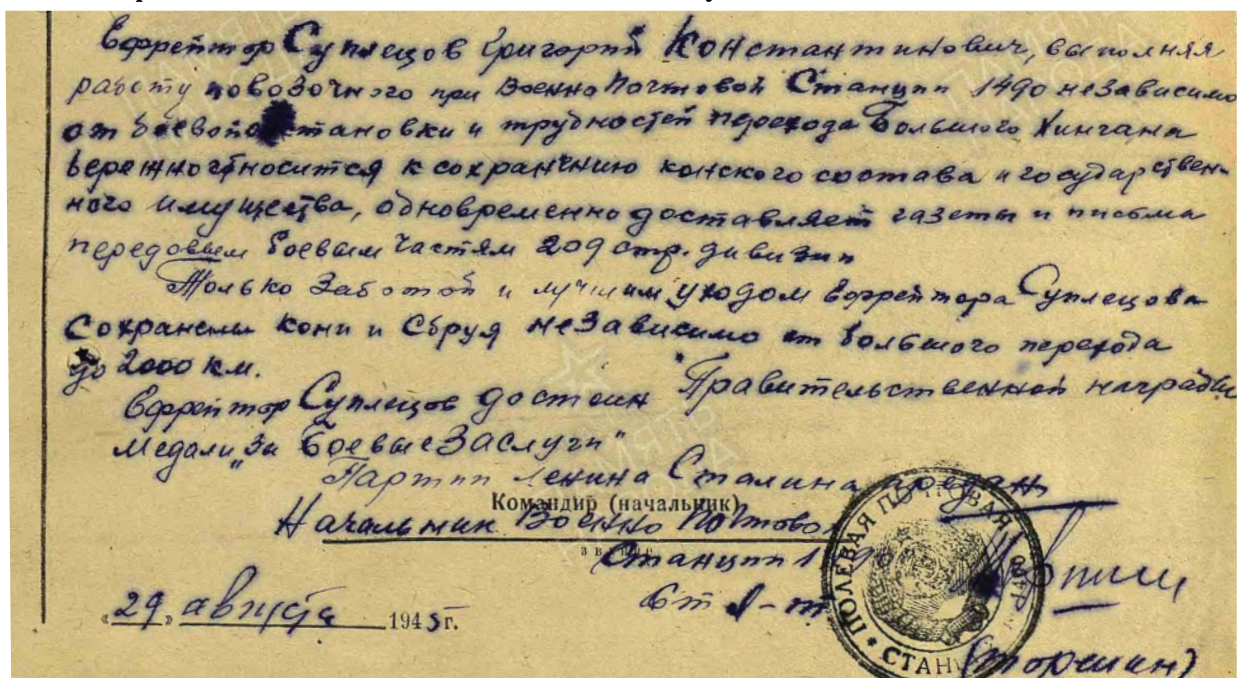 Ефрейтор Суплецов Григорий Константинович, выполняя
работу повозочного при Военно Почтовой Станции 1490 независимо
от боевой становки и трудностей перехода Большого Хингана
бережно относится к сохранению конского состава и государствен-
ного имущества, одновременно доставляет газеты и письма
передовым боевым частям 209 стр. дивизии
Только заботой и лучшим уходом Ефрейтора Суплецова
Сохранены кони и Сбруя независимо от большого перехода
до 2000 км.
Ефрейтор Суплецов достоин Правительственной награды
Медали "За Боевые Заслуги"
Партии Ленина Сталина предан
Командир (начальник)
Начальник Военно Почтовой
звание
Станции 1490
Ст л-т
"29" августа 1945 г.
ПОЛЕВАЯ ПОЧТОВАЯ СТАНЦИЯ
(Торшин)